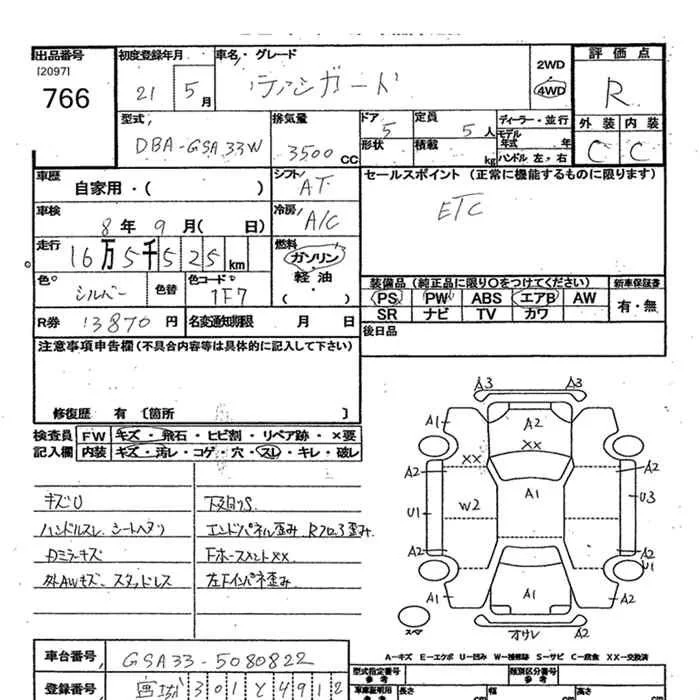 出品番号
[2097]
766
初度登録年月
21 5月
車名・グレード
ヴァンガード
2WD
4WD
評価点
R
外装 内装
C C
型式
DBA-GSA33W
排気量
3500CC
ドア
5
定員
5人
形状
積載
kg
ディーラー・並行
モデル年式 年
ハンドル 左・右
車歴
自家用・( )
シフト
AT
セールスポイント (正常に機能するものに限ります)
ETC
車検
8年9月( 日)
冷房
A/C
走行
16万5千525km
燃料
ガソリン
軽油
( )
色
シルバー
色替
色コード
1F7
装備品(純正品に限り○をつけてください)
PS PW ABS エアB AW
SR ナビ TV カワ
新車保証書
有・無
R券 13870円
名変通知期限 月 日
後日品
注意事項申告欄(不具合内容等は具体的に記入して下さい)
修復歴 有〔箇所 〕
検査員記入欄
FW キズ・飛石・ヒビ割・リペア跡・×要
内装 キズ・汚レ・コゲ・穴・スレ・キレ・破レ
キズU
ハンドルスレ、シートヘタリ
カミラーキズ
外AWキズ、スタッドレス
下廻りS
エンドパネル歪み、Rフロア歪み
FホースメントXX
左Fインパネ歪み
A3 A3
A1 A2 A2
XX XX
A2 A2
A1
W2
U1 U3
A2 A2
U1
A1 A1 A2
スペア
オサレ A2
A-キズ E-エクボ U-凹み W-補修跡 S-サビ C-腐食 XX-交換済
車台番号
GSA33-5080822
登録番号
宮城 301 と 4912
型式指定番号
参考
類別区分番号
参考
車庫証明用
参考
長さ cm
幅 cm
高さ cm